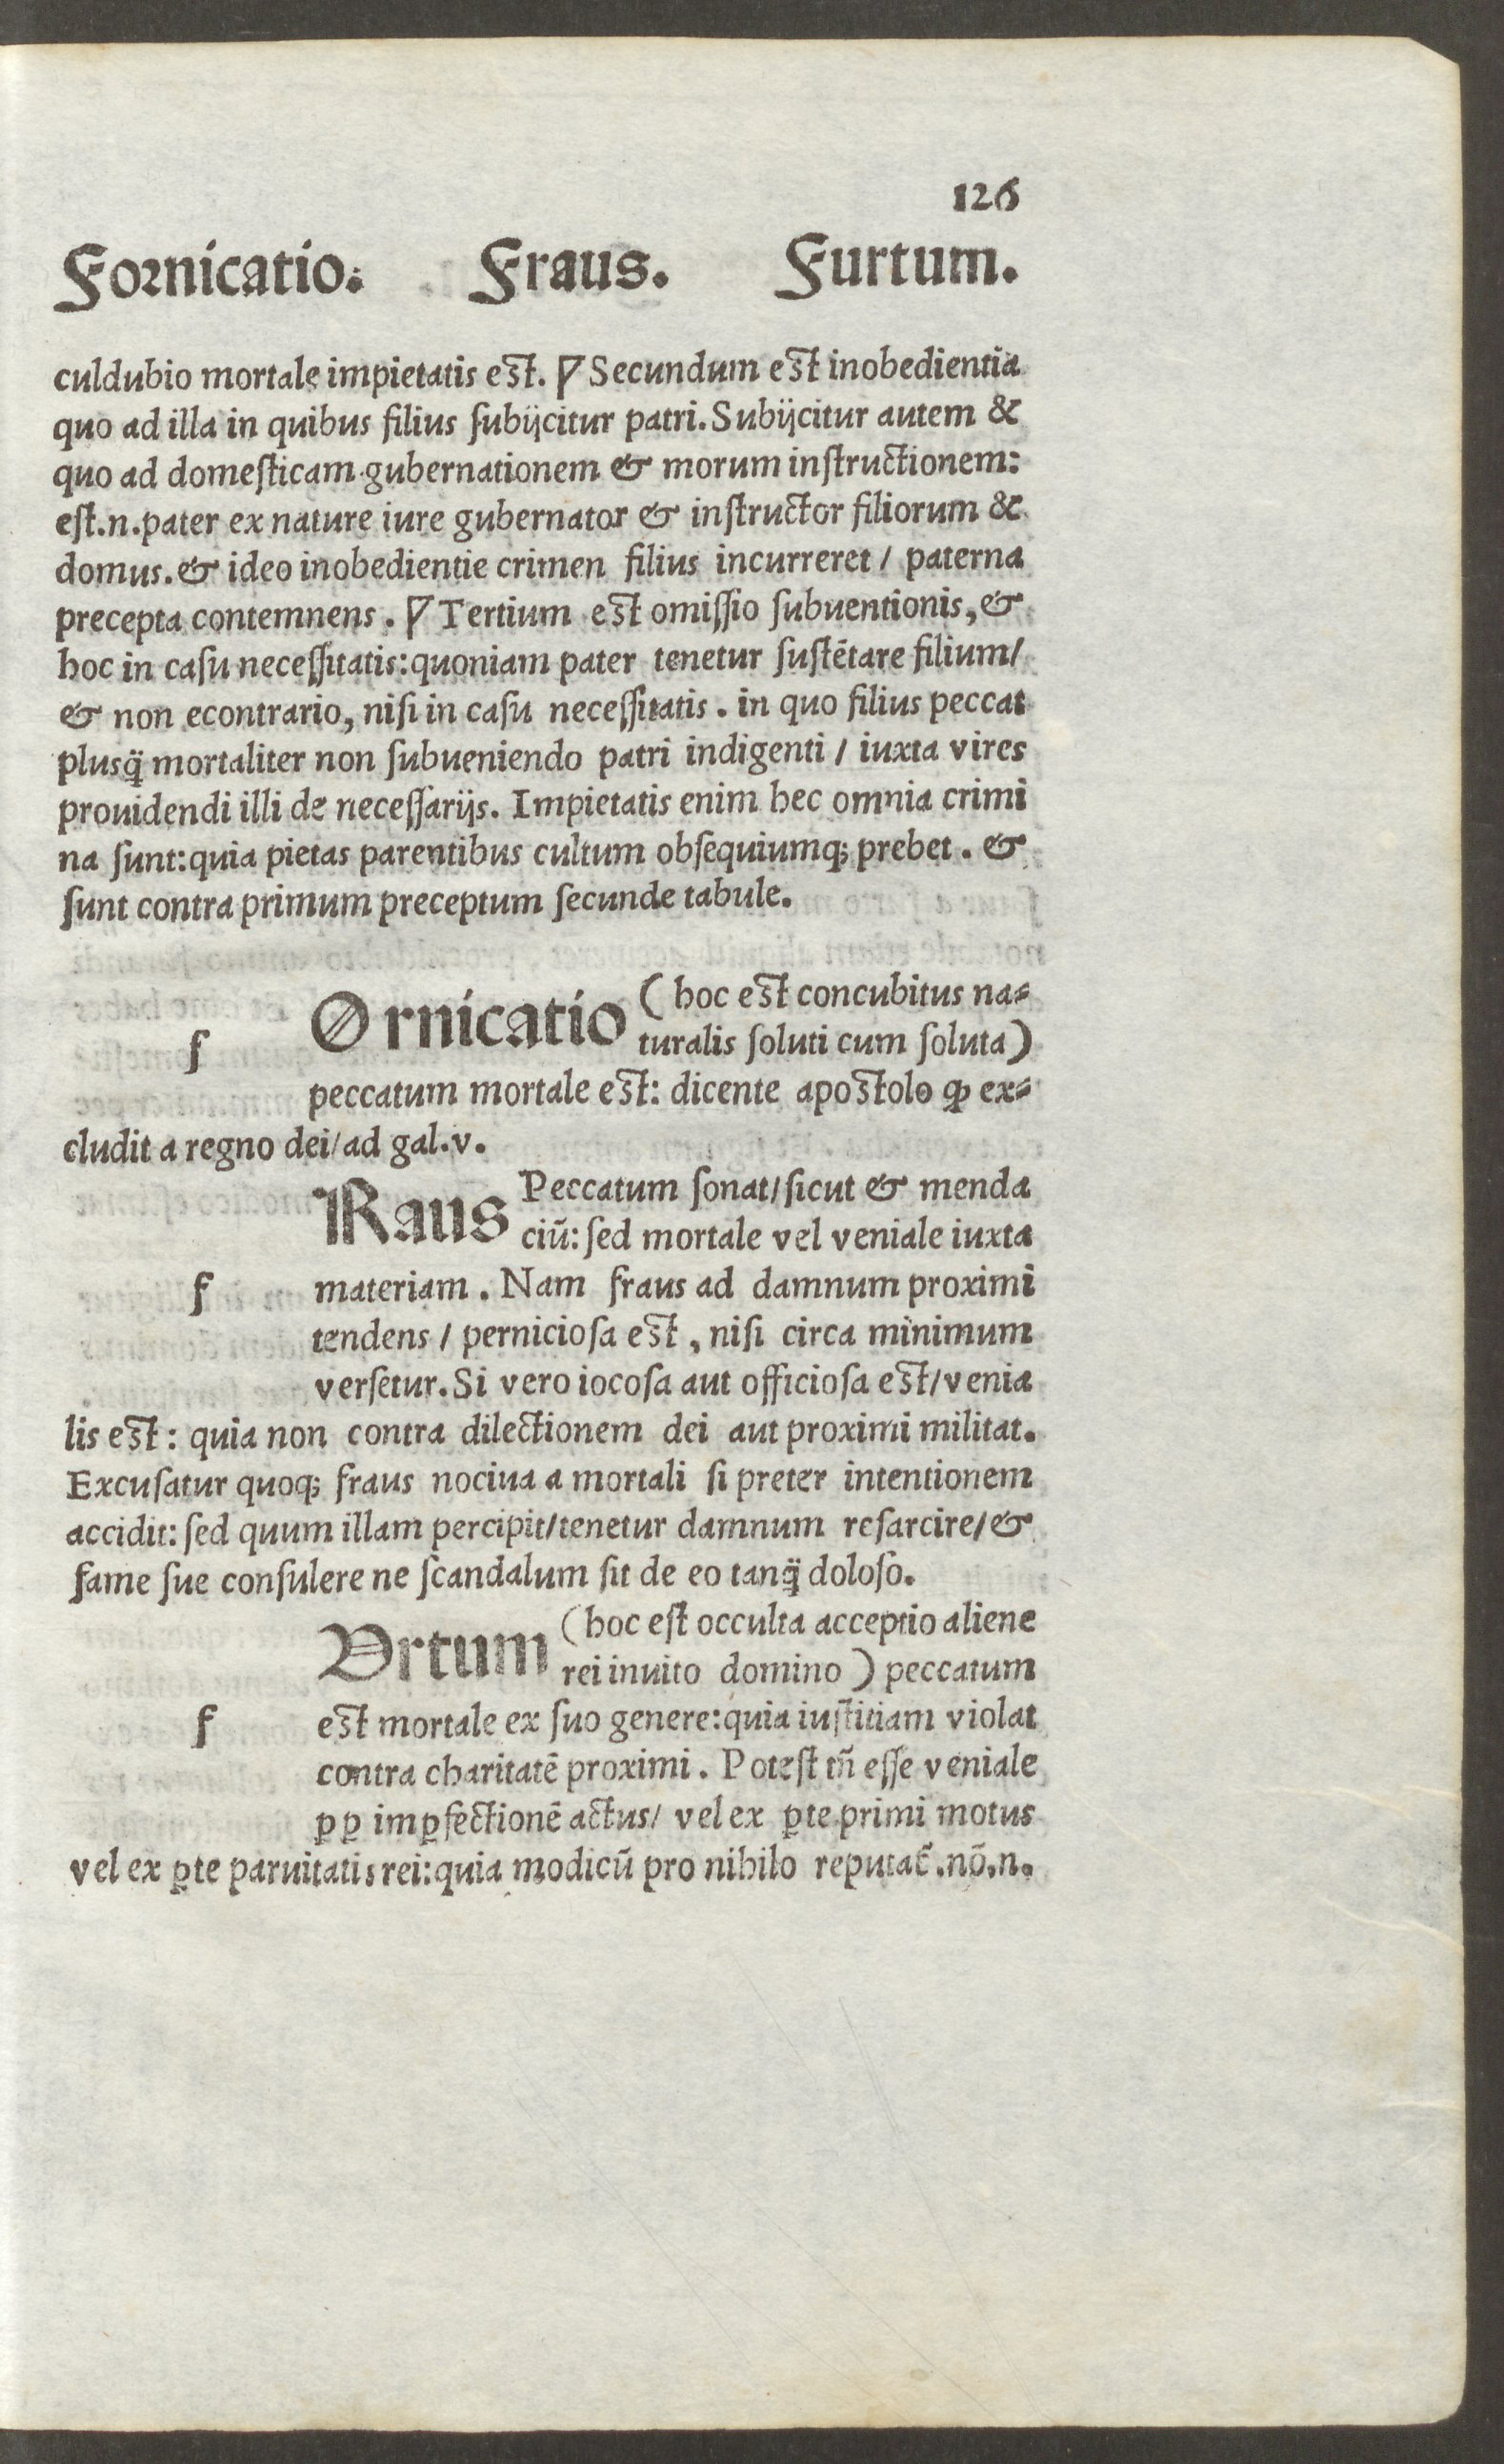 126
Fornicatio. Fraus. Furtum.
culdubio mortale impietatis est. ⁋ Secundum est inobedientia
quo ad illa in quibus filius ſubijcitur patri. Subijcitur autem &
quo ad domeſticam gubernationem & morum inſtructionem:
eſt.n.pater ex nature iure gubernator & inſtructor filiorum &
domus. & ideo inobedientie crimen filius incurreret / paterna
precepta contemnens. ⁋ Tertium est omiſſio ſubuentionis, &
hoc in caſu neceſſitatis: quoniam pater tenetur ſuſtētare filium/
& non econtrario, niſi in caſu neceſſitatis. in quo filius peccat
plusq̄ mortaliter non ſubueniendo patri indigenti / iuxta vires
prouidendi illi de neceſſarijs. Impietatis enim hec omnia crimi
na ſunt: quia pietas parentibus cultum obſequiumq; prebet. &
ſunt contra primum preceptum ſecunde tabule.
f Ornicatio (hoc est concubitus na⸗
turalis ſoluti cum ſoluta)
peccatum mortale est: dicente apostolo ꝙ ex⸗
cludit a regno dei/ ad gal.v.
f Raus Peccatum ſonat/ ſicut & menda
ciū: ſed mortale vel veniale iuxta
materiam. Nam fraus ad damnum proximi
tendens / pernicioſa est, niſi circa minimum
verſetur. Si vero iocoſa aut officioſa est/ venia
lis est: quia non contra dilectionem dei aut proximi militat.
Excuſatur quoq; fraus nociua a mortali ſi preter intentionem
accidit: ſed quum illam percipit/ tenetur damnum reſarcire/ &
fame ſue conſulere ne ſcandalum ſit de eo tanq̄ doloſo.
f Urtum (hoc eſt occulta acceptio aliene
rei inuito domino) peccatum
est mortale ex ſuo genere: quia iuſtitiam violat
contra charitatē proximi. Poteſt tñ eſſe veniale
ꝑꝑ imꝑfectionē actus/ vel ex ꝑte primi motus
vel ex ꝑte paruitatis rei: quia modicū pro nihilo reputat̄.nō.n.